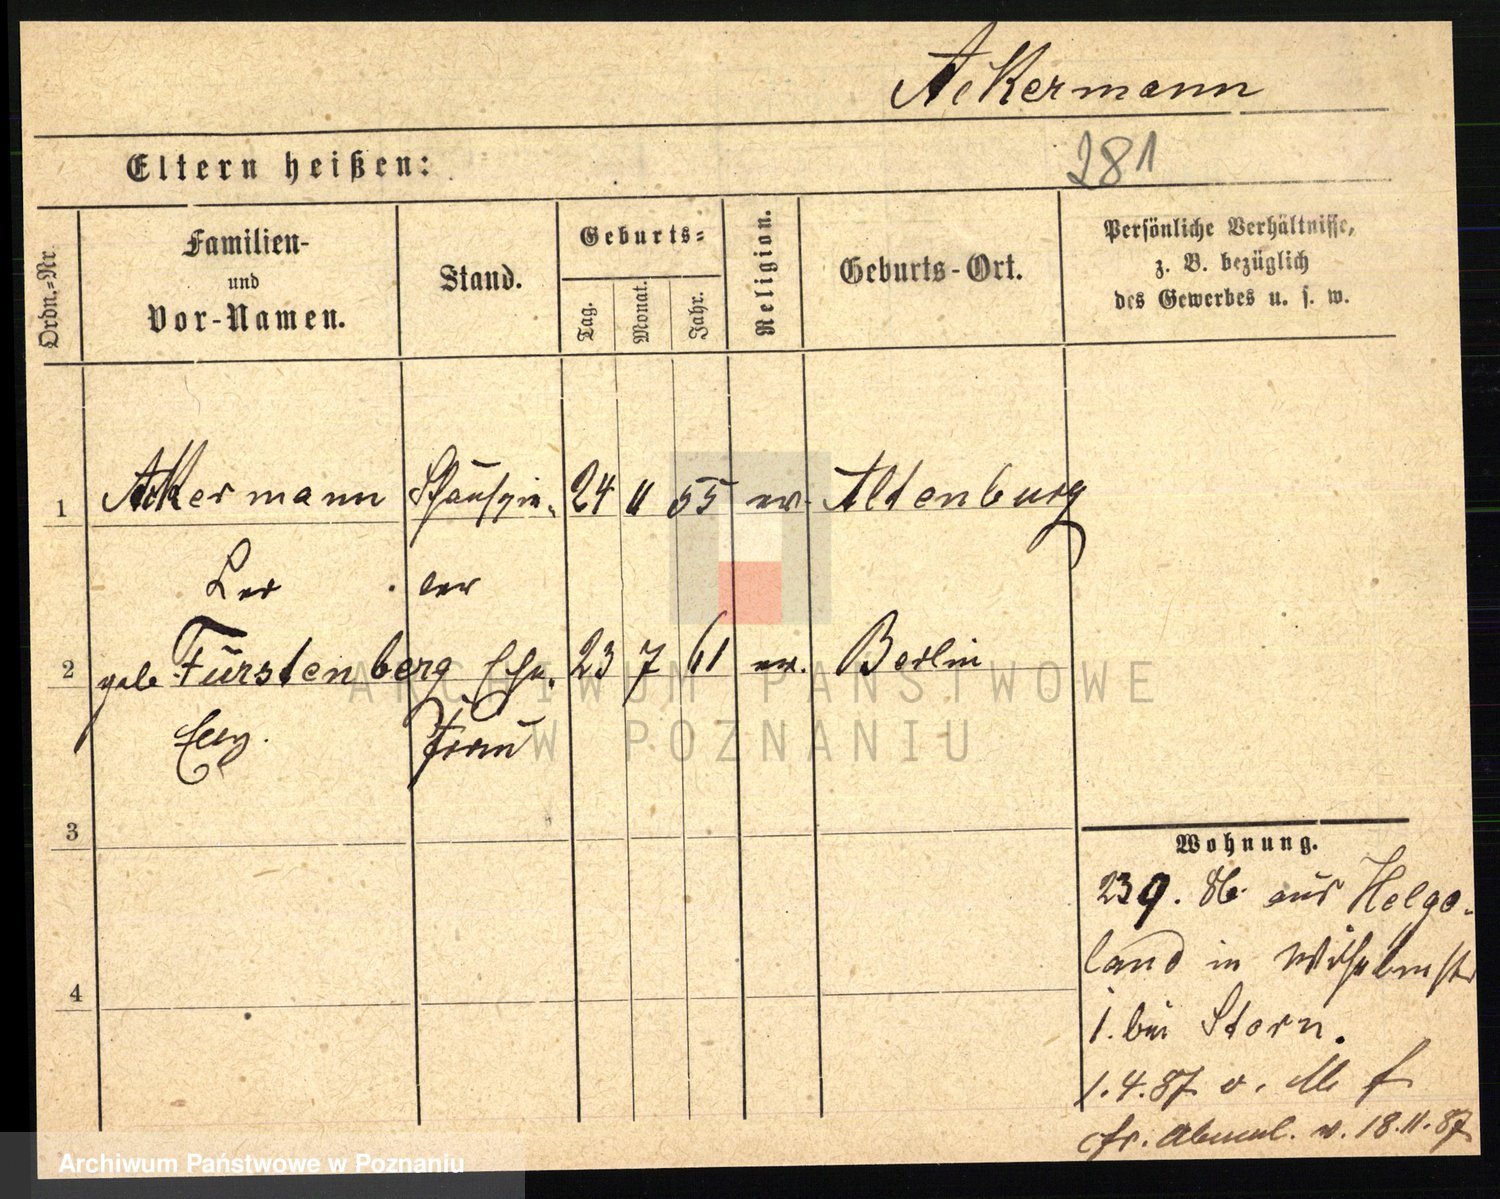 Ackermann
Eltern heißen:
281
Ordn.-Nr.
Familien-
und
Vor-Namen.
Stand.
Geburts-
Tag.
Monat.
Jahr.
Religion.
Geburts-Ort.
Persönliche Verhältnisse,
z. B. bezüglich
des Gewerbes u. s. w.
1 Ackermann Schauspie- 24 11 55 ev. Altenburg
Leo ler
2 geb Fürstenberg Ehe- 23 7 61 ev. Berlin
Elly. frau
3
4
Wohnung.
23 9. 86. aus Helgo-
land in Wilhelmstr
1. bei Stern.
1. 4. 87 v.
cfr. Abmel. v. 18.11.87
ARCHIWUM PAŃSTWOWE
W POZNANIU
Archiwum Państwowe w Poznaniu